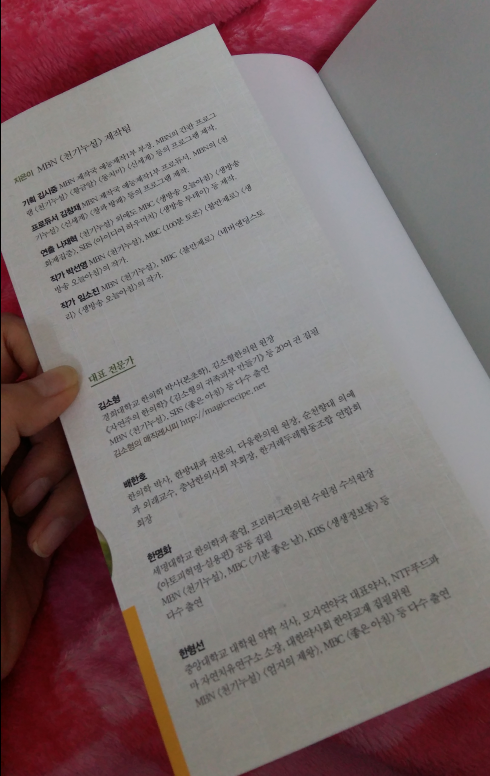 지은이 MBN 〈천기누설〉 제작팀
기획 김시중 MBN 제작국 예능제작1부 부장. MBN의 간판 프로그
램 〈천기누설〉 〈황금알〉 〈동치미〉 〈신세계〉 등의 프로그램 제작.
프로듀서 김창재 MBN 제작국 예능제작1부 프로듀서. MBN의 〈천
기누설〉 〈신세계〉 등의 프로그램 제작.
연출 나재혁 〈천기누설〉 외에도 MBC 〈생방송 오늘아침〉 〈생방송
화제집중〉, SBS 〈아이디어 하우머치〉 〈생방송 투데이〉 등 제작.
작가 박선영 MBN 〈천기누설〉, MBC 〈100분 토론〉 〈불만제로〉 〈생
방송 오늘아침〉의 작가.
작가 임소진 MBN 〈천기누설〉, MBC 〈불만제로〉 〈네버엔딩스토
리〉 〈생방송 오늘아침〉의 작가.
대표 전문가
김소형
경희대학교 한의학 박사(본초학), 김소형한의원 원장
《자연주의 한의학》 《김소형의 귀족피부 만들기》 등 20여 권 집필
MBN 〈천기누설〉, SBS 〈좋은 아침〉 등 다수 출연
김소형의 매직레시피 http://magicrecipe.net
배한호
한의학 박사, 한방내과 전문의, 다움한의원 원장, 순천향대 의예
과 외래교수, 충남한의사회 부회장, 한겨레두레협동조합 연합회
회장
한명화
세명대학교 한의학과 졸업, 프리허그한의원 수원점 수석원장
《아토피혁명-실용편》 공동 집필
MBN 〈천기누설〉, MBC 〈기분 좋은 날〉, KBS 〈생생정보통〉 등
다수 출연
한형선
중앙대학교 대학원 약학 석사, 모자연약국 대표약사, NTF푸드파
마 자연치유연구소 소장, 대한약사회 한약교재 집필위원
MBN 〈천기누설〉 〈엄지의 제왕〉, MBC 〈좋은 아침〉 등 다수 출연